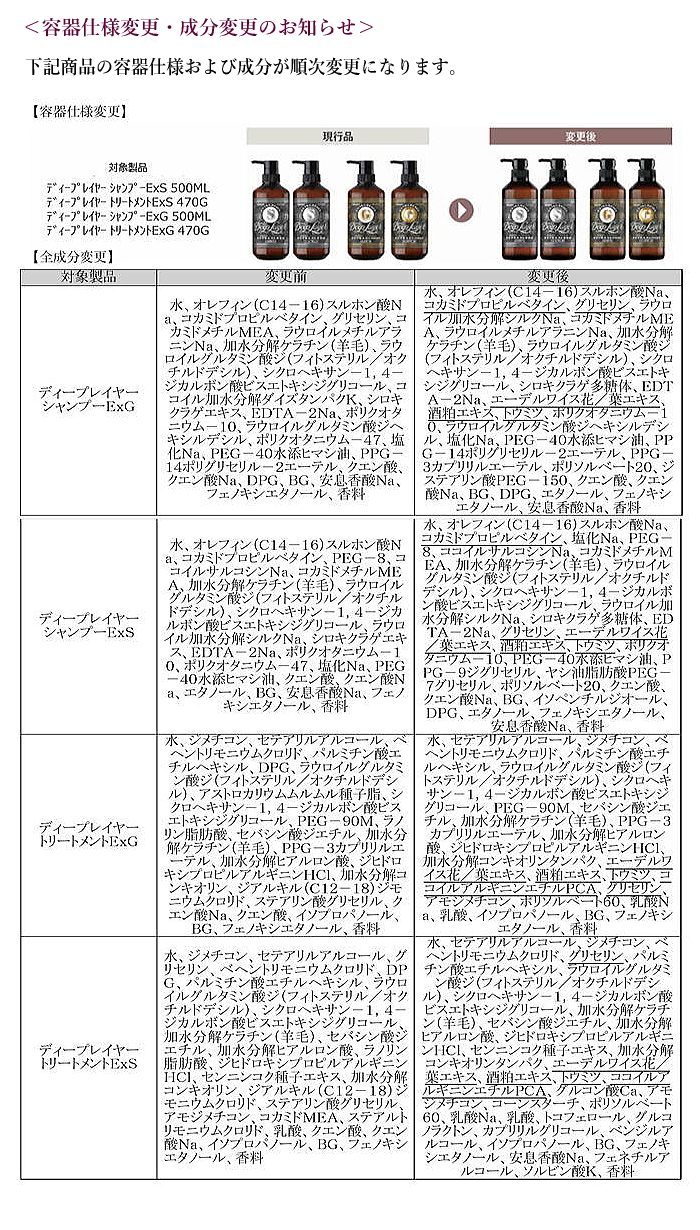 ＜容器仕様変更・成分変更のお知らせ＞
下記商品の容器仕様および成分が順次変更になります。
【容器仕様変更】
現行品
変更後
対象製品
ﾃﾞｨｰﾌﾟﾚｲﾔｰ ｼｬﾝﾌﾟｰExS 500ML
ﾃﾞｨｰﾌﾟﾚｲﾔｰ ﾄﾘｰﾄﾒﾝﾄExS 470G
ﾃﾞｨｰﾌﾟﾚｲﾔｰ ｼｬﾝﾌﾟｰExG 500ML
ﾃﾞｨｰﾌﾟﾚｲﾔｰ ﾄﾘｰﾄﾒﾝﾄExG 470G
【全成分変更】
対象製品
変更前
変更後
ディープレイヤー
シャンプーExG
水、オレフィン(C14－16)スルホン酸N
a、コカミドプロピルベタイン、グリセリン、コ
カミドメチルMEA、ラウロイルメチルアラ
ニンNa、加水分解ケラチン(羊毛)、ラウ
ロイルグルタミン酸ジ(フィトステリル／オク
チルドデシル)、シクロヘキサン－1，4－
ジカルボン酸ビスエトキシジグリコール、コ
コイル加水分解ダイズタンパクK、シロキ
クラゲエキス、EDTA－2Na、ポリクオタ
ニウム－10、ラウロイルグルタミン酸ジヘ
キシルデシル、ポリクオタニウム－47、塩
化Na、PEG－40水添ヒマシ油、PPG－
14ポリグリセリル－2エーテル、クエン酸、
クエン酸Na、DPG、BG、安息香酸Na、
フェノキシエタノール、香料
水、オレフィン(C14－16)スルホン酸Na、
コカミドプロピルベタイン、グリセリン、ラウロ
イル加水分解シルクNa、コカミドメチルME
A、ラウロイルメチルアラニンNa、加水分解
ケラチン(羊毛)、ラウロイルグルタミン酸ジ
(フィトステリル／オクチルドデシル)、シクロ
ヘキサン－1，4－ジカルボン酸ビスエトキ
シジグリコール、シロキクラゲ多糖体、EDT
A－2Na、エーデルワイス花／葉エキス、
酒粕エキス、トウミツ、ポリクオタニウム－1
0、ラウロイルグルタミン酸ジヘキシルデシ
ル、塩化Na、PEG－40水添ヒマシ油、PP
G－14ポリグリセリル－2エーテル、PPG－
3カプリリルエーテル、ポリソルベート20、ジ
ステアリン酸PEG－150、クエン酸、クエン
酸Na、BG、DPG、エタノール、フェノキシ
エタノール、安息香酸Na、香料
ディープレイヤー
シャンプーExS
水、オレフィン(C14－16)スルホン酸N
a、コカミドプロピルベタイン、PEG－8、コ
コイルサルコシンNa、コカミドメチルME
A、加水分解ケラチン(羊毛)、ラウロイル
グルタミン酸ジ(フィトステリル／オクチル
ドデシル)、シクロヘキサン－1，4－ジカ
ルボン酸ビスエトキシジグリコール、ラウロ
イル加水分解シルクNa、シロキクラゲエキ
ス、EDTA－2Na、ポリクオタニウム－1
0、ポリクオタニウム－47、塩化Na、PEG
－40水添ヒマシ油、クエン酸、クエン酸N
a、エタノール、BG、安息香酸Na、フェノ
キシエタノール、香料
水、オレフィン(C14－16)スルホン酸Na、
コカミドプロピルベタイン、塩化Na、PEG－
8、ココイルサルコシンNa、コカミドメチルM
EA、加水分解ケラチン(羊毛)、ラウロイル
グルタミン酸ジ(フィトステリル／オクチルド
デシル)、シクロヘキサン－1，4－ジカルボ
ン酸ビスエトキシジグリコール、ラウロイル加
水分解シルクNa、シロキクラゲ多糖体、ED
TA－2Na、グリセリン、エーデルワイス花
／葉エキス、酒粕エキス、トウミツ、ポリクオ
タニウム－10、PEG－40水添ヒマシ油、P
PG－9ジグリセリル、ヤシ油脂肪酸PEG－
7グリセリル、ポリソルベート20、クエン酸、
クエン酸Na、BG、イソペンチルジオール、
DPG、エタノール、フェノキシエタノール、
安息香酸Na、香料
ディープレイヤー
トリートメントExG
水、ジメチコン、セテアリルアルコール、ベ
ヘントリモニウムクロリド、パルミチン酸エ
チルヘキシル、DPG、ラウロイルグルタミ
ン酸ジ(フィトステリル／オクチルドデシ
ル)、アストロカリウムムルムル種子脂、シ
クロヘキサン－1，4－ジカルボン酸ビス
エトキシジグリコール、PEG－90M、ラノ
リン脂肪酸、セバシン酸ジエチル、加水分
解ケラチン(羊毛)、PPG－3カプリリルエ
ーテル、加水分解ヒアルロン酸、ジヒドロ
キシプロピルアルギニンHCl、加水分解コ
ンキオリン、ジアルキル(C12－18)ジモ
ニウムクロリド、ステアリン酸グリセリル、ク
エン酸Na、クエン酸、イソプロパノール、
BG、フェノキシエタノール、香料
水、セテアリルアルコール、ジメチコン、ベ
ヘントリモニウムクロリド、パルミチン酸エチ
ルヘキシル、ラウロイルグルタミン酸ジ(フィ
トステリル／オクチルドデシル)、シクロヘキ
サン－1，4－ジカルボン酸ビスエトキシジ
グリコール、PEG－90M、セバシン酸ジエ
チル、加水分解ケラチン(羊毛)、PPG－3
カプリリルエーテル、加水分解ヒアルロン
酸、ジヒドロキシプロピルアルギニンHCl、
加水分解コンキオリンタンパク、エーデルワ
イス花／葉エキス、酒粕エキス、トウミツ、コ
コイルアルギニンエチルPCA、グリセリン、
アモジメチコン、ポリソルベート60、乳酸N
a、乳酸、イソプロパノール、BG、フェノキシ
エタノール、香料
ディープレイヤー
トリートメントExS
水、ジメチコン、セテアリルアルコール、グ
リセリン、ベヘントリモニウムクロリド、DP
G、パルミチン酸エチルヘキシル、ラウロ
イルグルタミン酸ジ(フィトステリル／オク
チルドデシル)、シクロヘキサン－1，4－
ジカルボン酸ビスエトキシジグリコール、
加水分解ケラチン(羊毛)、セバシン酸ジ
エチル、加水分解ヒアルロン酸、ラノリン
脂肪酸、ジヒドロキシプロピルアルギニン
HCl、センニンコク種子エキス、加水分解
コンキオリン、ジアルキル(C12－18)ジ
モニウムクロリド、ステアリン酸グリセリル、
アモジメチコン、コカミドMEA、ステアルト
リモニウムクロリド、乳酸、クエン酸、クエン
酸Na、イソプロパノール、BG、フェノキシ
エタノール、香料
水、セテアリルアルコール、ジメチコン、ベ
ヘントリモニウムクロリド、グリセリン、パルミ
チン酸エチルヘキシル、ラウロイルグルタミ
ン酸ジ(フィトステリル／オクチルドデシ
ル)、シクロヘキサン－1，4－ジカルボン酸
ビスエトキシジグリコール、加水分解ケラチ
ン(羊毛)、セバシン酸ジエチル、加水分解
ヒアルロン酸、ジヒドロキシプロピルアルギニ
ンHCl、センニンコク種子エキス、加水分解
コンキオリンタンパク、エーデルワイス花／
葉エキス、酒粕エキス、トウミツ、ココイルア
ルギニンエチルPCA、グルコン酸Ca、アモ
ジメチコン、コーンスターチ、ポリソルベート
60、乳酸Na、乳酸、トコフェロール、グルコ
ノラクトン、カプリリルグリコール、ベンジルア
ルコール、イソプロパノール、BG、フェノキ
シエタノール、安息香酸Na、フェネチルア
ルコール、ソルビン酸K、香料